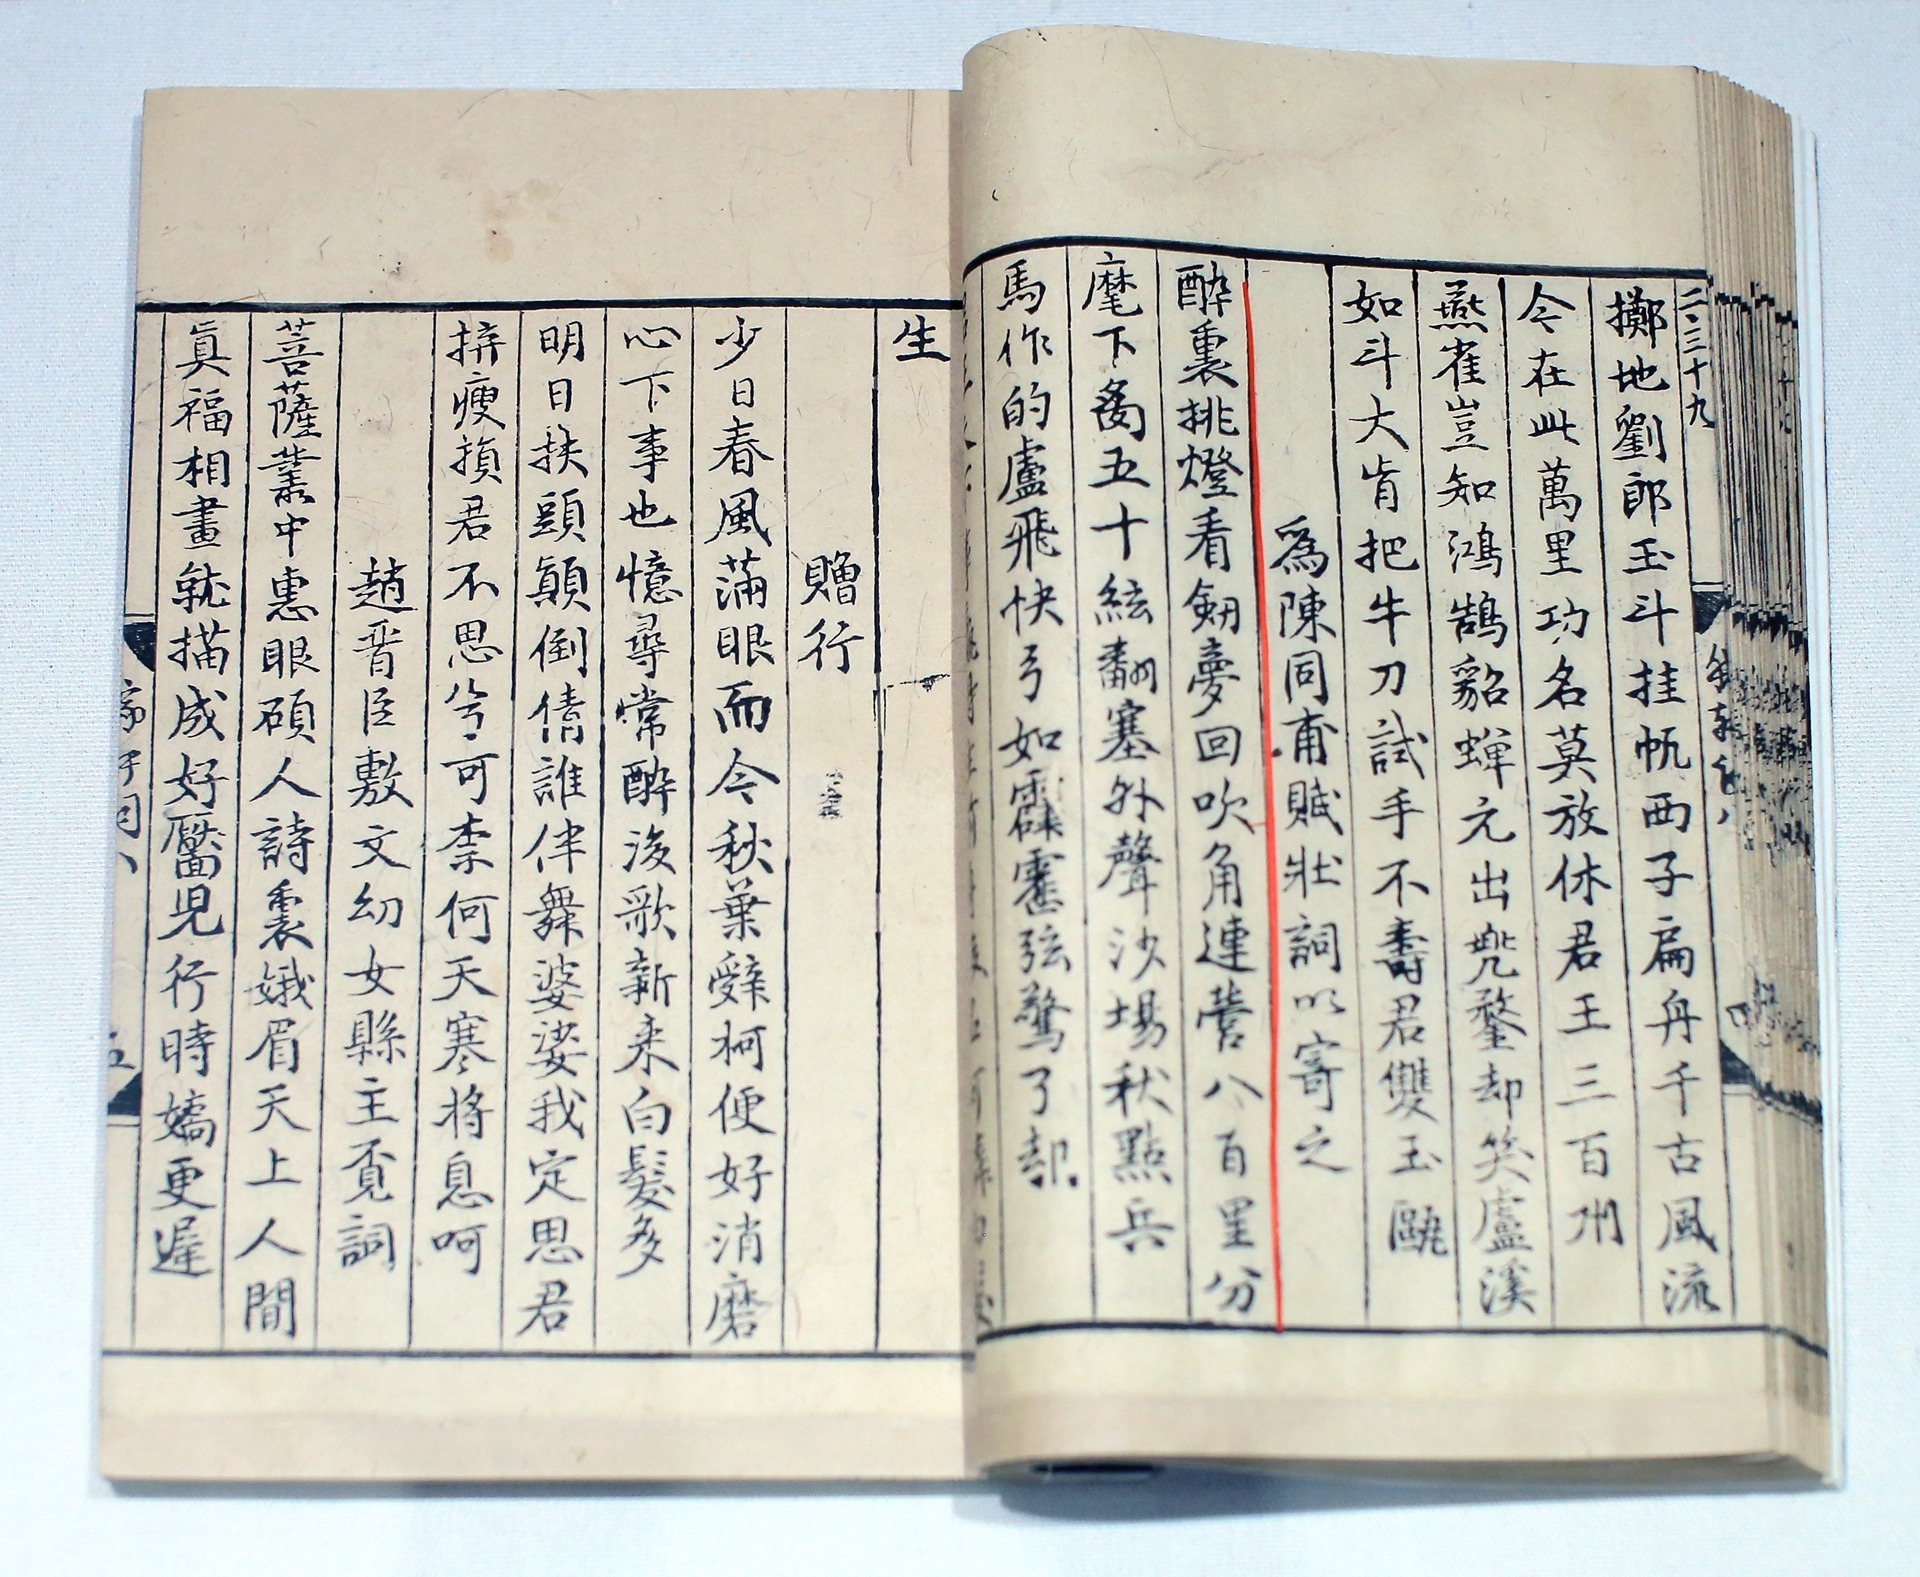 二三十九
擲地劉郎玉斗挂帆西子扁舟千古風流
今在此萬里功名莫放休君王三百州
燕雀豈知鴻鵠貂蟬元出兜鍪却笑盧溪
如斗大肯把牛刀試手不壽君雙玉甌
爲陳同甫賦壯詞以寄之
醉裏挑燈看劒夢回吹角連營八百里分
麾下五十絃翻塞外聲沙場秋點兵
馬作的盧飛快弓如霹靂弦驚了却
生
贈行
少日春風滿眼而今秋葉辭柯便好消磨
心下事也憶尋常醉後歌新来白髮多
明日扶頭顛倒倩誰伴舞婆娑我定思君
拚瘦損君不思兮可柰何天寒將息呵
趙晋臣敷文幼女縣主覔詞
菩薩叢中惠眼碩人詩裏娥眉天上人間
眞福相畫就描成好靨兒行時嬌更遲